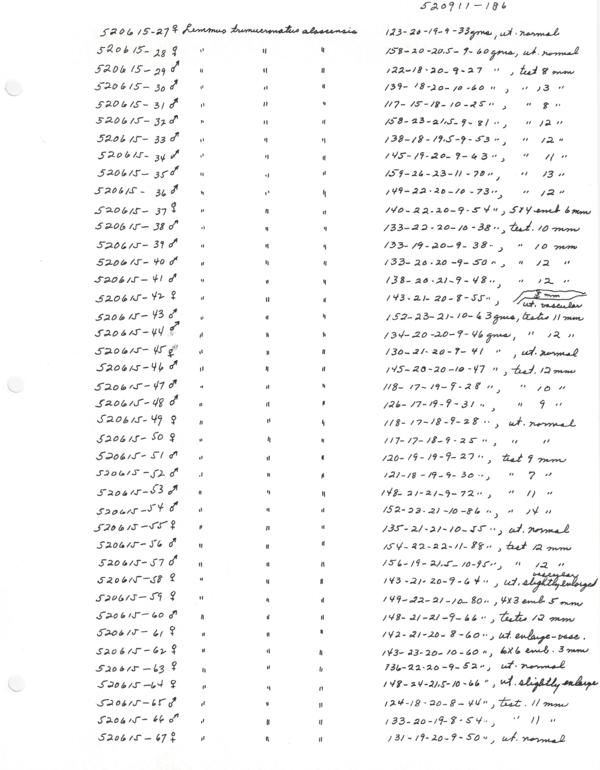 520911-186
520615-27♀ Lemmus trimucronatus alascensis 123-20-19-9-33gms, ut. normal
520615-28♀ " " " 158-20-20.5-9-60gms, ut. normal
520615-29♂ " " " 122-18-20-9-27 ", test 8 mm
520615-30♂ " " " 139-18-20-10-60 ", " 13 "
520615-31♂ " " " 117-15-18-10-25 ", " 8 "
520615-32♂ " " " 158-23-21.5-9-81 ", " 12 "
520615-33♂ " " " 138-18-19.5-9-53 ", " 12 "
520615-34♂ " " " 145-19-20-9-63 ", " 11 "
520615-35♂ " " " 159-26-23-11-70 ", " 13 "
520615-36♂ " " " 149-22-20-10-73 ", " 12 "
520615-37♀ " " " 140-22-20-9-54 ", 5X4 emb 6 mm
520615-38♂ " " " 133-22-20-10-38 ", test. 10 mm
520615-39♂ " " " 133-19-20-9-38 ", " 10 mm
520615-40♂ " " " 133-20-20-9-50 ", " 12 "
520615-41♂ " " " 138-20-21-9-48 ", " 12 "
520615-42♀ " " " 143-21-20-8-55 ", ut. vascular
520615-43♂ " " " 152-23-21-10-63gms, testis 11 mm
520615-44♂ " " " 134-20-20-9-46gms, " 12 "
520615-45♀ " " " 130-21-20-9-41 ", ut. normal
520615-46♂ " " " 145-20-20-10-47 ", test. 12 mm
520615-47♂ " " " 118-17-19-9-28 ", " 10 "
520615-48♂ " " " 126-17-19-9-31 ", " 9 "
520615-49♀ " " " 118-17-18-9-28 ", ut. normal
520615-50♀ " " " 117-17-18-9-25 ", " "
520615-51♂ " " " 120-19-19-9-27 ", test 9 mm
520615-52♂ " " " 121-18-19-9-30 ", " 7 "
520615-53♂ " " " 148-21-21-9-72 ", " 11 "
520615-54♂ " " " 152-23-21-10-86 ", " 14 "
520615-55♀ " " " 135-21-21-10-55 ", ut. normal
520615-56♂ " " " 154-22-22-11-88 ", test 12 mm
520615-57♂ " " " 156-19-21.5-10-95 ", " 12 "
520615-58♀ " " " 143-21-20-9-64 ", ut. slightly enlarged vascular
520615-59♀ " " " 149-22-21-10-80 ", 4X3 emb 5 mm
520615-60♂ " " " 148-21-21-9-66 ", testis 12 mm
520615-61♀ " " " 142-21-20-8-60 ", ut. enlarge-vasc.
520615-62♀ " " " 143-23-20-10-60 ", 6X6 emb. 3 mm
520615-63♀ " " " 136-22-20-9-52 ", ut. normal
520615-64♀ " " " 148-24-21.5-10-66 ", ut. slightly enlarge
520615-65♂ " " " 124-18-20-8-44 ", test. 11 mm
520615-66♂ " " " 133-20-19-8-54 ", " 11 "
520615-67♀ " " " 131-19-20-9-50 ", ut. normal